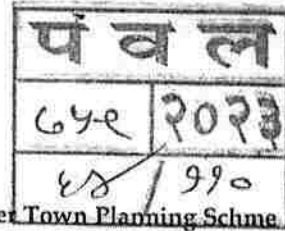 पं व ल
७५९ २०२३
६४ / ११०
er Town Planning Schme